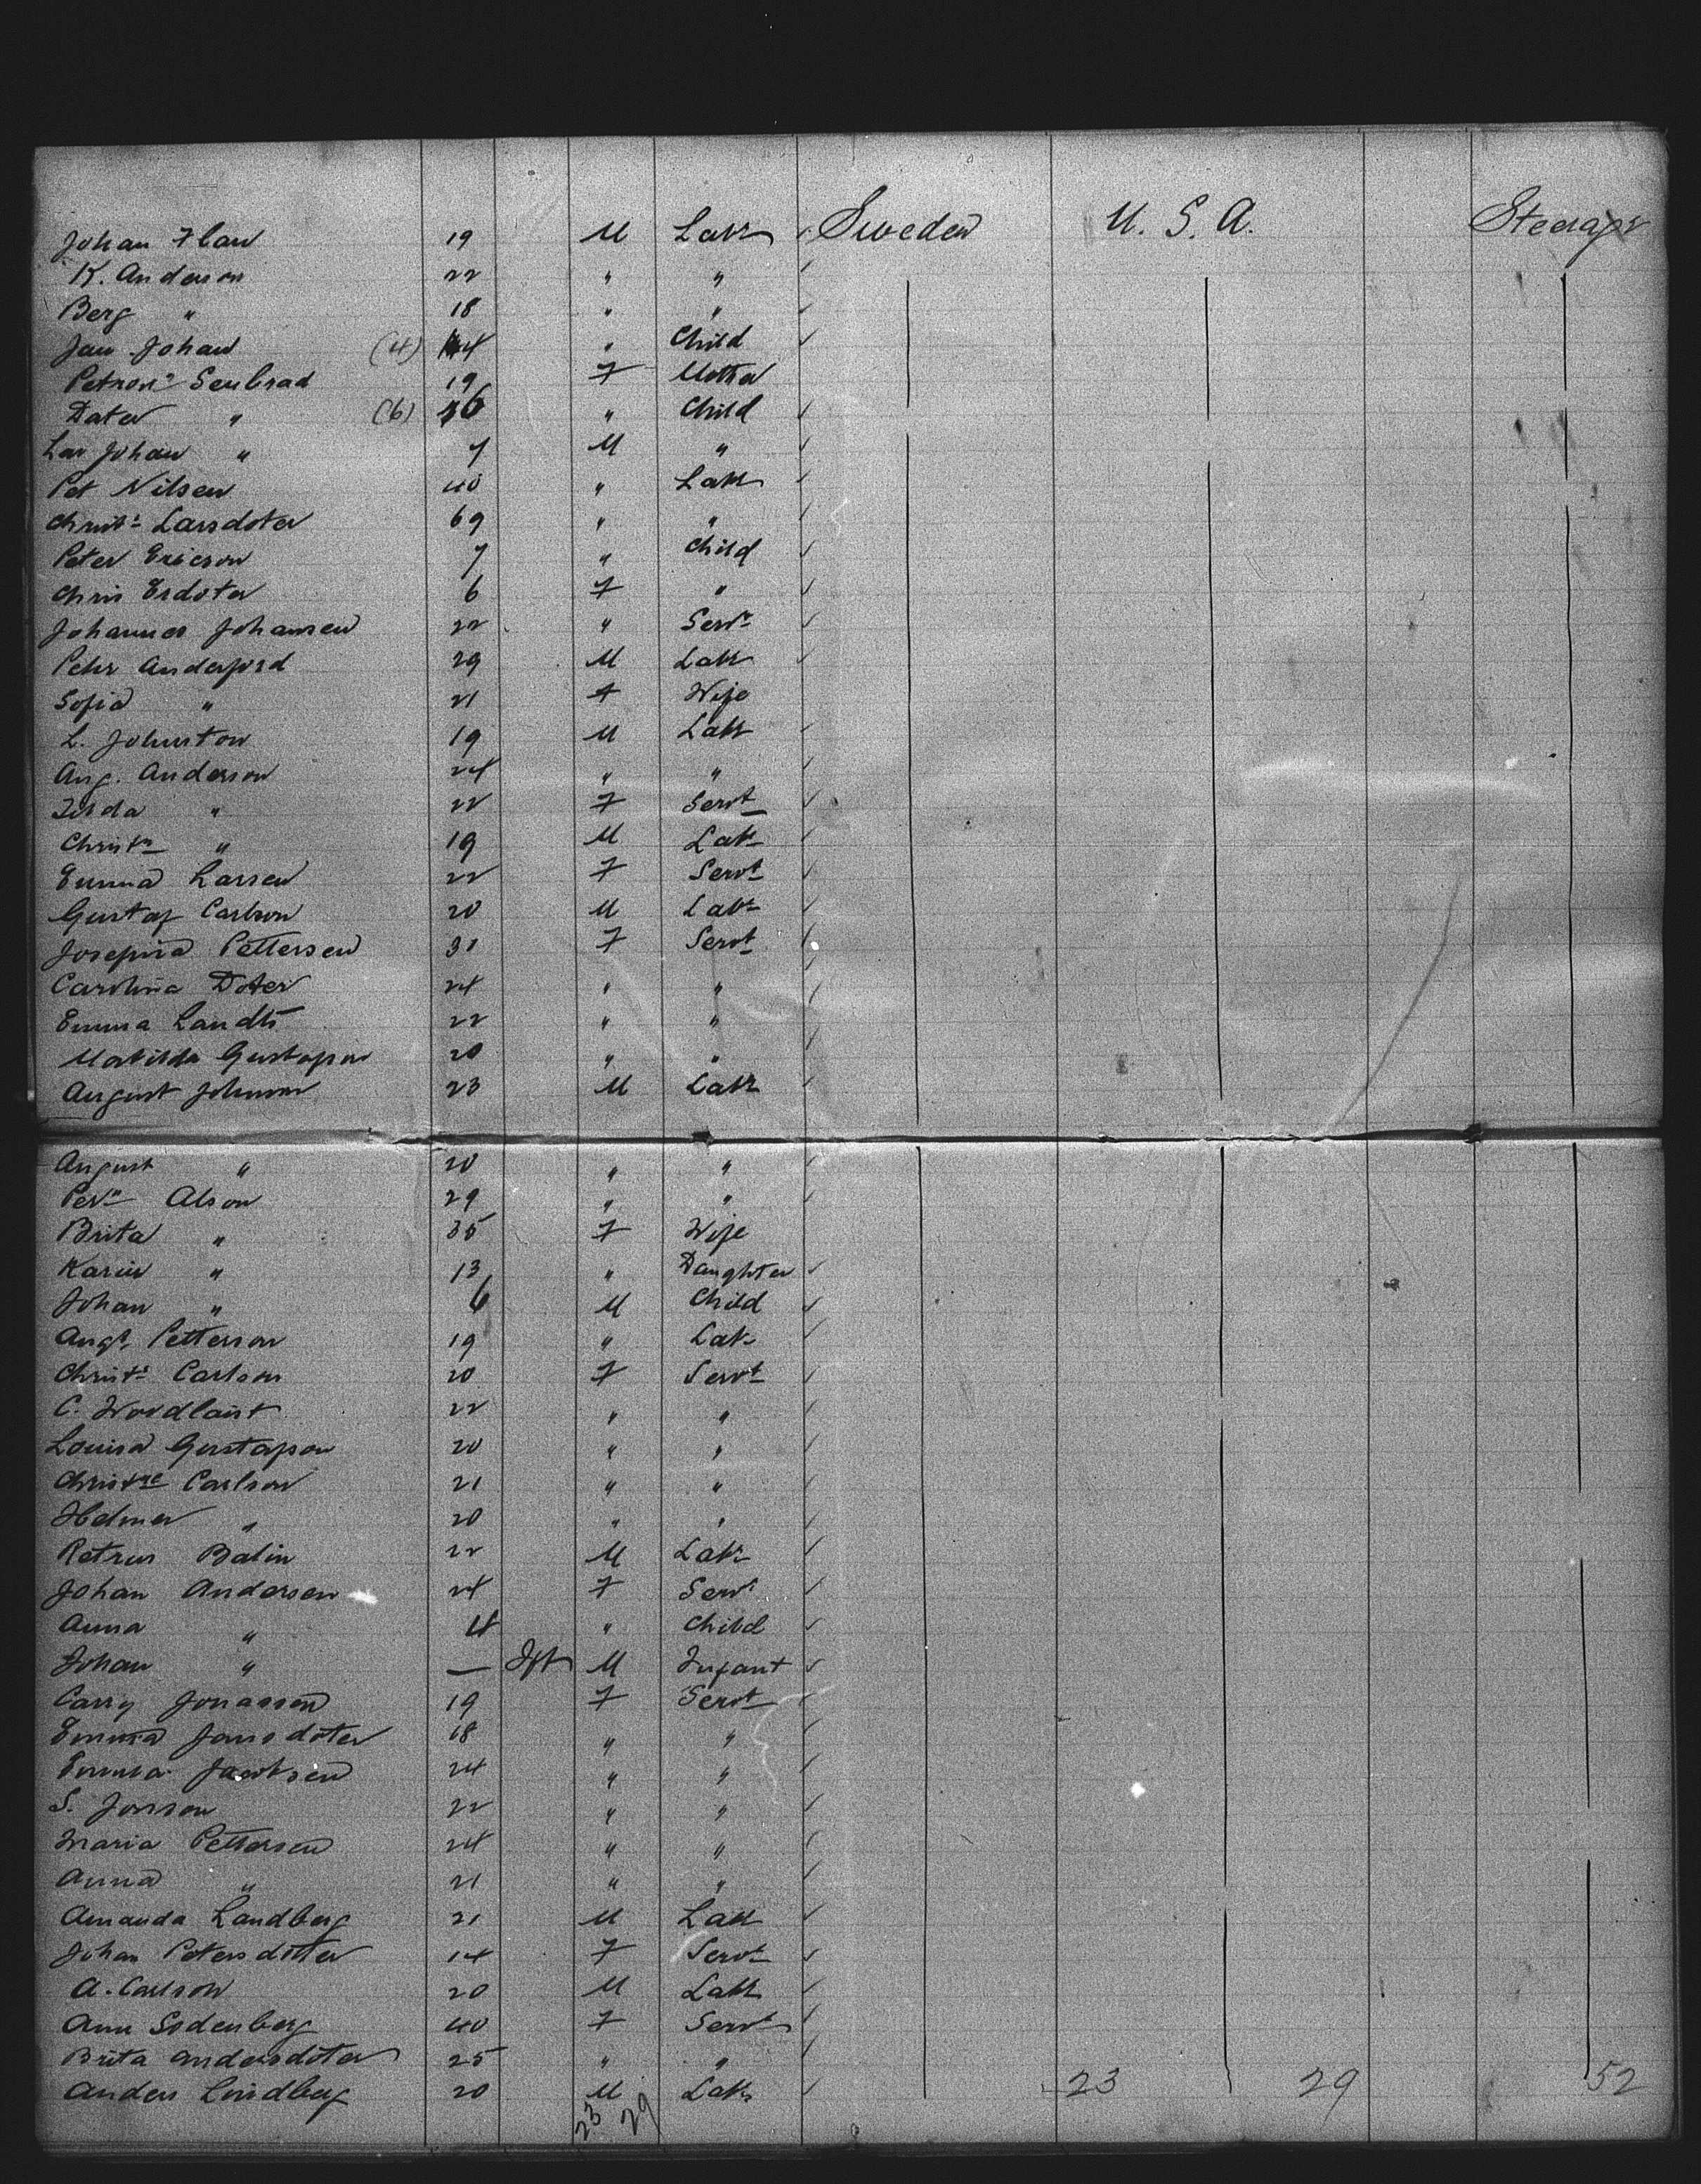 Johan Flau 19 M Labr Sweden U. S. A. Steerage
K. Anderson 22 " "
Berg " 18 " "
Jan Johan (4) 4 " Child
Petron Senbrad 19 F Mother
Dater " (6) 6 " Child
Lar Johan " 7 M "
Pet Nilsen 40 " Labr
Christ Larsdoter 69 " "
Peter Ericson 7 " Child
Chris Erdoter 6 F "
Johannes Johansen 22 " Servt
Pehr Anderford 29 M Labr
Sofia " 21 F Wife
L. Johnston 19 M Labr
Aug. Anderson 24 " "
" 22 F Servt
Christn " 19 M Labr
Emma Larsen 22 F Servt
Gustaf Carlson 20 M Labr
Josefina Pettersen 31 F Servt
Carolina Doter 24 " "
Emma Landts 22 " "
Matilda Gustafson 20 " "
August Johnson 23 M Labr
August " 20 " "
Pern Alson 29 " "
Brita " 35 F Wife
Karin " 13 " Daughter
Johan " 6 M Child
Augt Petterson 19 " Labr
Christ Carlson 20 F Servt
C. Woodlaist 22 " "
Louisa Gustafson 20 " "
Christne Carlson 21 " "
Helmer " 20 " "
Petrus Balin 22 M Labr
Johan Andersen 24 F Servt
Anna " 4 " Child
Johan " — Inft M Infant
Carry Jonassen 19 F Servt
Emma Jansdoter 18 " "
Emma Jacobsen 24 " "
S. Jonson 22 " "
Maria Pettersen 24 " "
Anna " 21 " "
Amanda Landberg 21 M Labr
Johan Petersdotter 14 F Servt
A. Carlson 20 M Labr
Ann Sodenberg 40 F Servt
Brita Andersdoter 25 " "
Anders Lindberg 20 M Labr 23 29 52
23 29